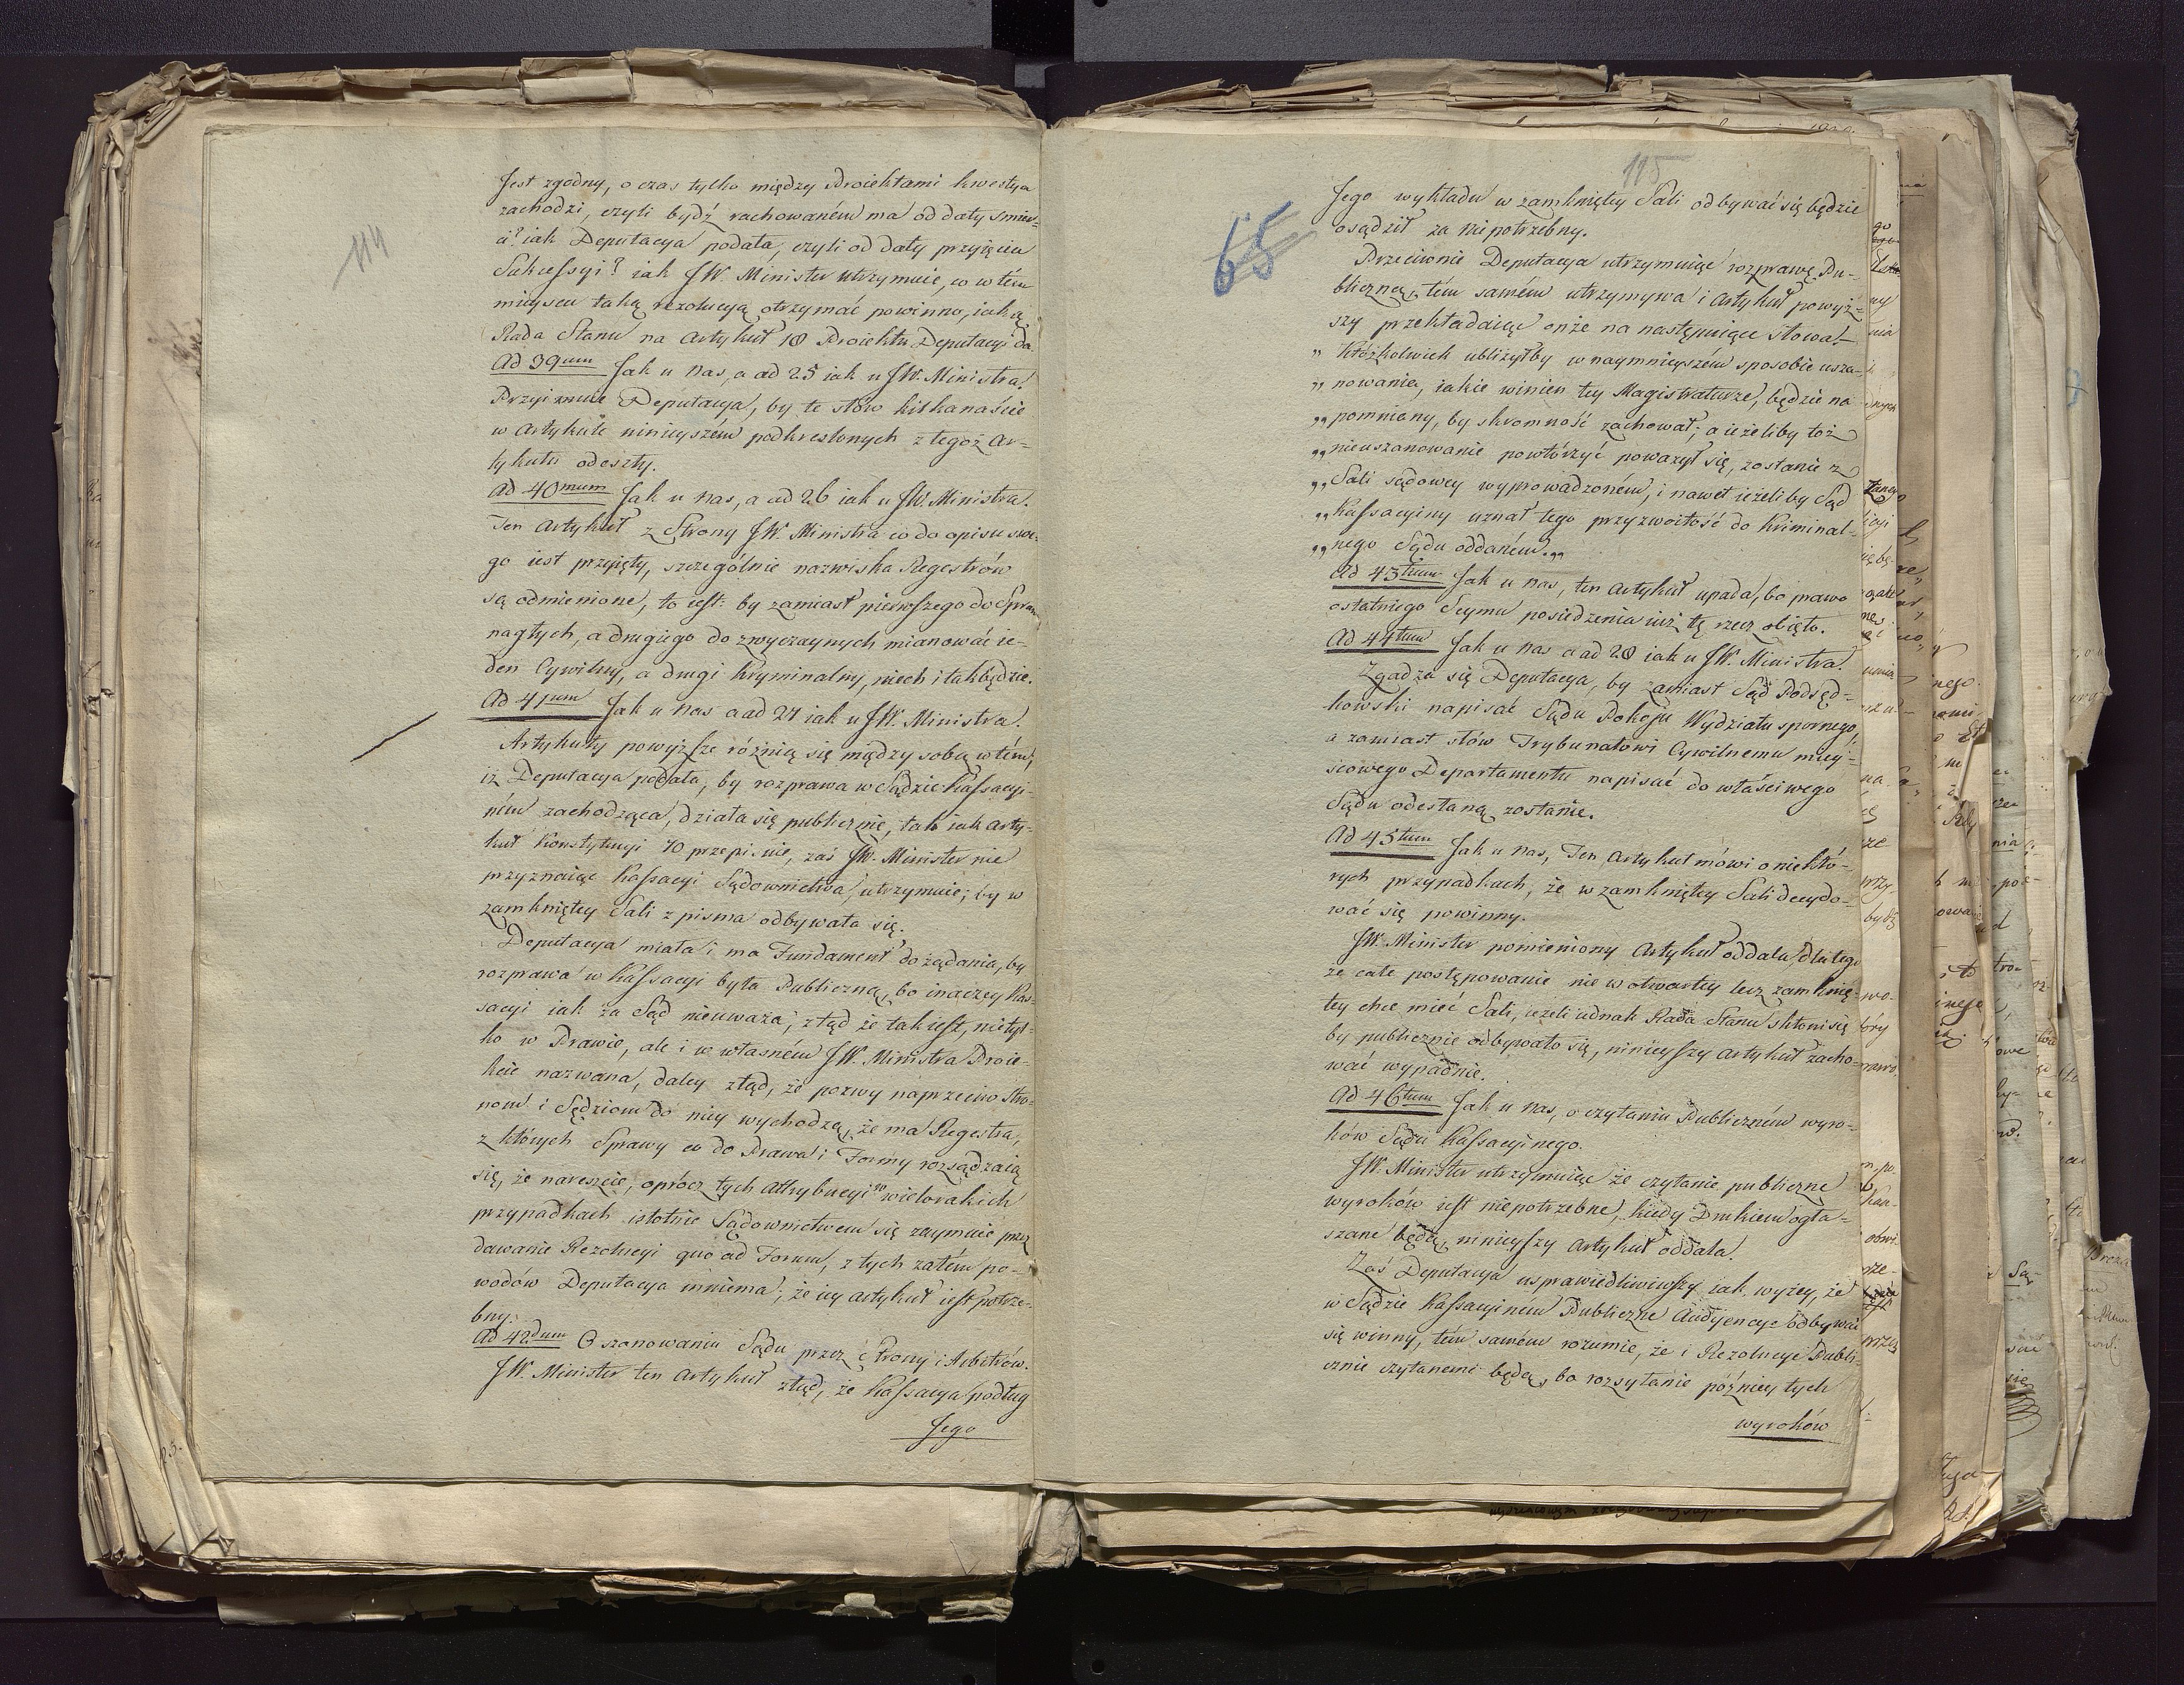 114
Jest zgodny, o czas tylko między Proiektami kwestya
zachodzi, czyli bydź rachowaném ma od daty śmier=
ci? iak Deputacya podała, czyli od daty przyjęcia
Sukcessyi? iak JW. Minister utrzymuie, co w tém
mieyscu taką rezolucyą otrzymać powinno, iaką
Rada Stanu na Artykuł 18 Proiektu Deputacyi da.
Ad 39num Jak u nas, a ad 25 iak u JW. Ministra.
Przyimuie Deputacya, by te słów kilkanaście
w Artykule ninieyszém podkreslonych z tegoż Ar=
tykułu odeszły.
Ad 40mum Jak u nas, a ad 26 iak u JW. Ministra.
Ten Artykuł z Strony JW. Ministra co do opisu swe=
go iest przyięty, szczególnie nazwiska Regestrów
są odmienione, to iest: by zamiast pierwszego do Spraw
nagłych, a drugiego do zwyczaynych mianować ie=
den Cywilny, a drugi Kryminalny, niech i tak będzie.
Ad 41mum Jak u nas a ad 27 iak u JW. Ministra.
Artykuły powyższe różnią się między sobą w tém,
iż Deputacya podała, by rozprawa w Sądzie Kassacyi=
ném zachodząca, działa się publicznie, tak iak Arty=
kuł Konstytucyi 70 przepisuie, zaś JW. Minister nie
przyznaiąc Kassacyi Sądownictwa, utrzymuie; by w
zamkniętey Sali z pisma odbywała się.
Deputacya miała i ma Fundament do żądania, by
rozprawa w Kassacyi była Publiczną, bo inaczey Kas=
sacyi iak za Sąd nieuważa; ztąd że tak iest, nietyl=
ko w Prawie, ale i w własném JW. Ministra Proie=
kcie nazwana, daley ztąd, że pozwy naprzeciw Stro=
nom i Sędziom do niey wychodzą, że ma Regestra,
z których Sprawy co do Prawa i Formy rozsądzaią
się, że nareszcie, oprócz tych Attrybucyi w wielorakich
przypadkach istotnie Sądownictwem się zaymuie przez
dawanie Rezolucyi quo ad Forum, z tych zatém po=
wodów Deputacya mniema; że iey Artykuł iest potrze=
bny.
Ad 42dum O szanowaniu Sądu przez Strony i Arbitrów.
JW. Minister ten Artykuł ztąd, że Kassacya podług
Jego
115
65
Jego wykładu w zamkniętey Sali odbywać się będzie
osądził za niepotrzebny.
Przeciwnie Deputacya utrzymuiąc rozprawę Pu=
bliczną, tém samém utrzymywa i Artykuł powyż=
szy przekładaiąc onże na następuiące słowa:
„ Któżkolwiek ubliżyłby w naymnieyszém sposobie usza=
„ nowania, iakie winien tey Magistraturze, będzie na=
„ pomniony, by skromność zachował; a ieżeliby toż
„ nieuszanowanie powtórzyć poważył się, zostanie z
„ Sali sądowey wyprowadzoném, i nawet ieżeliby Sąd
„ Kassacyiny uznał tego przyzwoitość do Kriminal=
„ nego Sądu oddaném„
Ad 43tium Jak u nas, ten Artykuł upada, bo prawo
ostatniego Seymu posiedzenia iuż tę rzecz obięło.
Ad 44tum Jak u nas a ad 28 iak u JW. Ministra.
Zgadza się Deputacya, by zamiast Sąd Podsęd=
kowski napisać Sądu Pokoju Wydziału spornego,
a zamiast słów Trybunałowi Cywilnemu miey=
scowego Departamentu napisać do właściwego
Sądu odesłaną zostanie.
Ad 45tum Jak u nas, Ten Artykuł mówi o niektó=
rych przypadkach, że w zamkniętey Sali decydo=
wać się powinny.
JW. Minister pomieniony Artykuł oddala, dla tego
że całe postępowanie nie w otwartey lecz zamknię=
tey chce mieć Sali, ieżeli iednak Rada Stanu skłoni się
by publicznie odbywało się, ninieyszy Artykuł zacho=
wać wypadnie.
Ad 46tum Jak u nas, o czytaniu Publiczném wyro=
ków Sądu Kassacyinego.
JW. Minister utrzymuiąc że czytanie publiczne
wyroków iest niepotrzebne, kiedy Drukiem ogła=
szane będą, ninieyszy Artykuł oddala.
Zaś Deputacya usprawiedliwiwszy iak wyżey, że
w Sądzie Kassacyiném Publiczne Audyencye odbywać
się winny, tém samém rozumie, że i Rezolucye Publi=
cznie czytanemi będą, bo rozsyłanie późniey tych
wyroków